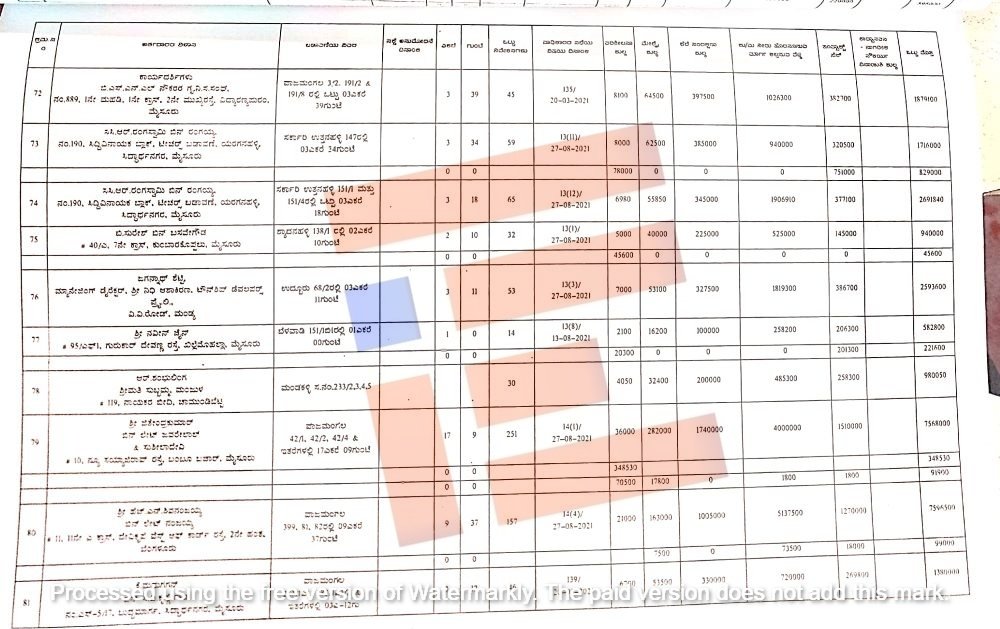 ಎಕರೆ ಗುಂಟೆ ಒಟ್ಟು
72 ಕಾರ್ಯದರ್ಶಿಗಳು
ಬಿ.ಎಸ್.ಎನ್.ಎಲ್ ನೌಕರರ ಗೃ.ನಿ.ಸ.ಸಂಘ,
ನಂ.889, 1ನೇ ಮಹಡಿ, 1ನೇ ಕ್ರಾಸ್, 2ನೇ ಮುಖ್ಯರಸ್ತೆ, ವಿದ್ಯಾರಣ್ಯಪುರಂ,
ಮೈಸೂರು
ವಾಜಮಂಗಲ 3/2, 191/2 &
191/8 ರಲ್ಲಿ ಒಟ್ಟು 03ಎಕರೆ
39ಗುಂಟೆ
3 39 45 135/
20-03-2021
8100 64500 397500 1026300 382700 1879100
73 ಸಿಸಿ.ಆರ್.ರಂಗಸ್ವಾಮಿ ಬಿನ್ ರಂಗಯ್ಯ
ನಂ.190, ಸಿದ್ದಿವಿನಾಯಕ ಬ್ಲಾಕ್, ಟೀಚರ್ಸ್ ಬಡಾವಣೆ, ಯರಗನಹಳ್ಳಿ,
ಸಿದ್ಧಾರ್ಥನಗರ, ಮೈಸೂರು
ಸರ್ಕಾರಿ ಉತ್ತನಹಳ್ಳಿ 147ರಲ್ಲಿ
03ಎಕರೆ 34ಗುಂಟೆ
3 34 59 13(11)/
27-08-2021
8000 62500 385000 940000 320500 1716000
0 0 78000 0 0 0 751000 829000
74 ಸಿಸಿ.ಆರ್.ರಂಗಸ್ವಾಮಿ ಬಿನ್ ರಂಗಯ್ಯ
ನಂ.190, ಸಿದ್ದಿವಿನಾಯಕ ಬ್ಲಾಕ್, ಟೀಚರ್ಸ್ ಬಡಾವಣೆ, ಯರಗನಹಳ್ಳಿ,
ಸಿದ್ಧಾರ್ಥನಗರ, ಮೈಸೂರು
ಸರ್ಕಾರಿ ಉತ್ತನಹಳ್ಳಿ 151/1 ಮತ್ತು
151/4ರಲ್ಲಿ ಒಟ್ಟು 03ಎಕರೆ
18ಗುಂಟೆ
3 18 65 13(12)/
27-08-2021
6980 55850 345000 1906910 377100 2691840
75 ಬಿ.ಸುರೇಶ್ ಬಿನ್ ಬಸವೇಗೌಡ
# 40/ಎ, 7ನೇ ಕ್ರಾಸ್, ಕುಂಬಾರಕೊಪ್ಪಲು, ಮೈಸೂರು
138/1 ರಲ್ಲಿ 02ಎಕರೆ
10ಗುಂಟೆ
2 10 32 13(1)/
27-08-2021
5000 40000 225000 525000 145000 940000
0 0 45600 0 0 0 0 45600
76 ಜಗನ್ನಾಥ್ ಶೆಟ್ಟಿ,
ಮ್ಯಾನೇಜಿಂಗ್ ಡೈರೆಕ್ಟರ್, ಶ್ರೀ ನಿಧಿ ಆಶಾಕಿರಣ, ಟೌನ್‌ಶಿಪ್ ಡೆವಲಪರ್ಸ್
ಪ್ರೈ.ಲಿ.,
ವಿ.ವಿ.ರೋಡ್, ಮಂಡ್ಯ
ಉದ್ಬೂರು 68/2ರಲ್ಲಿ 03ಎಕರೆ
11ಗುಂಟೆ
3 11 53 13(3)/
27-08-2021
7000 53100 327500 1819300 386700 2593600
77 ಶ್ರೀ ನವೀನ್ ಜೈನ್
# 95/ಎಫ್1, ಗುರುಕಾರ್ ದೇವಣ್ಣ ರಸ್ತೆ, ಖಿಲ್ಲೆಮೊಹಲ್ಲಾ, ಮೈಸೂರು
ಬೆಳವಾಡಿ 01ಎಕರೆ
00ಗುಂಟೆ
1 0 14 13(8)/
13-08-2021
2100 16200 100000 258200 206300 582800
0 0 20300 0 0 0 201300 221600
78 ಆರ್.ಶಂಭುಲಿಂಗ
ಶ್ರೀಮತಿ ಸುಬ್ಬಮ್ಮ ಮಂಜುಳ
# 119, ನಾಯಕರ ಬೀದಿ, ಚಾಮುಂಡಿಬೆಟ್ಟ
ಮಂಡಕಳ್ಳಿ ಸ.ನಂ.233/2,3,4,5
30 4050 32400 200000 485300 258300 980050
79 ಶ್ರೀ ಜಿತೇಂದ್ರಕುಮಾರ್
ಬಿನ್ ಲೇಟ್ ಜವರೇಲಾಲ್
& ಸುಶೀಲಾದೇವಿ
# 10, ನ್ಯೂ ಸಯ್ಯಾಜಿರಾವ್ ರಸ್ತೆ, ಬಂಬೂ ಬಜಾರ್, ಮೈಸೂರು
ವಾಜಮಂಗಲ
42/1, 42/2, 42/4 &
ಇತರೆಗಳಲ್ಲಿ 17ಎಕರೆ 09ಗುಂಟೆ
17 9 251 14(1)/
27-08-2021
36000 282000 1740000 4000000 1510000 7568000
0 0 348530 348530
0 0 70500 17800 0 1800 1800 91900
80 ಶ್ರೀ ಹೆಚ್.ಎನ್.ಶಿವನಂಜಯ್ಯ
ಬಿನ್ ಲೇಟ್ ನಂಜಯ್ಯ
# 11, 11ನೇ ಎ ಕ್ರಾಸ್, ವೆಸ್ಟ್ ಆಫ್ ಕಾರ್ಡ್ ರಸ್ತೆ, 2ನೇ ಹಂತ,
ಬೆಂಗಳೂರು
ವಾಜಮಂಗಲ
399, 81, 82ರಲ್ಲಿ 09ಎಕರೆ
37ಗುಂಟೆ
9 37 157 14(4)/
27-08-2021
21000 163000 1005000 5137500 1270000 7596500
0 0 7500 0 73500 18000 99000
81 ವಾಜಮಂಗಲ
139/
6700 53500 330000 720000 269800 1380000
ಸಿದ್ಧಾರ್ಥನಗರ, ಮೈಸೂರು
Processed using the free version of Watermarkly. The paid version does not add this mark.